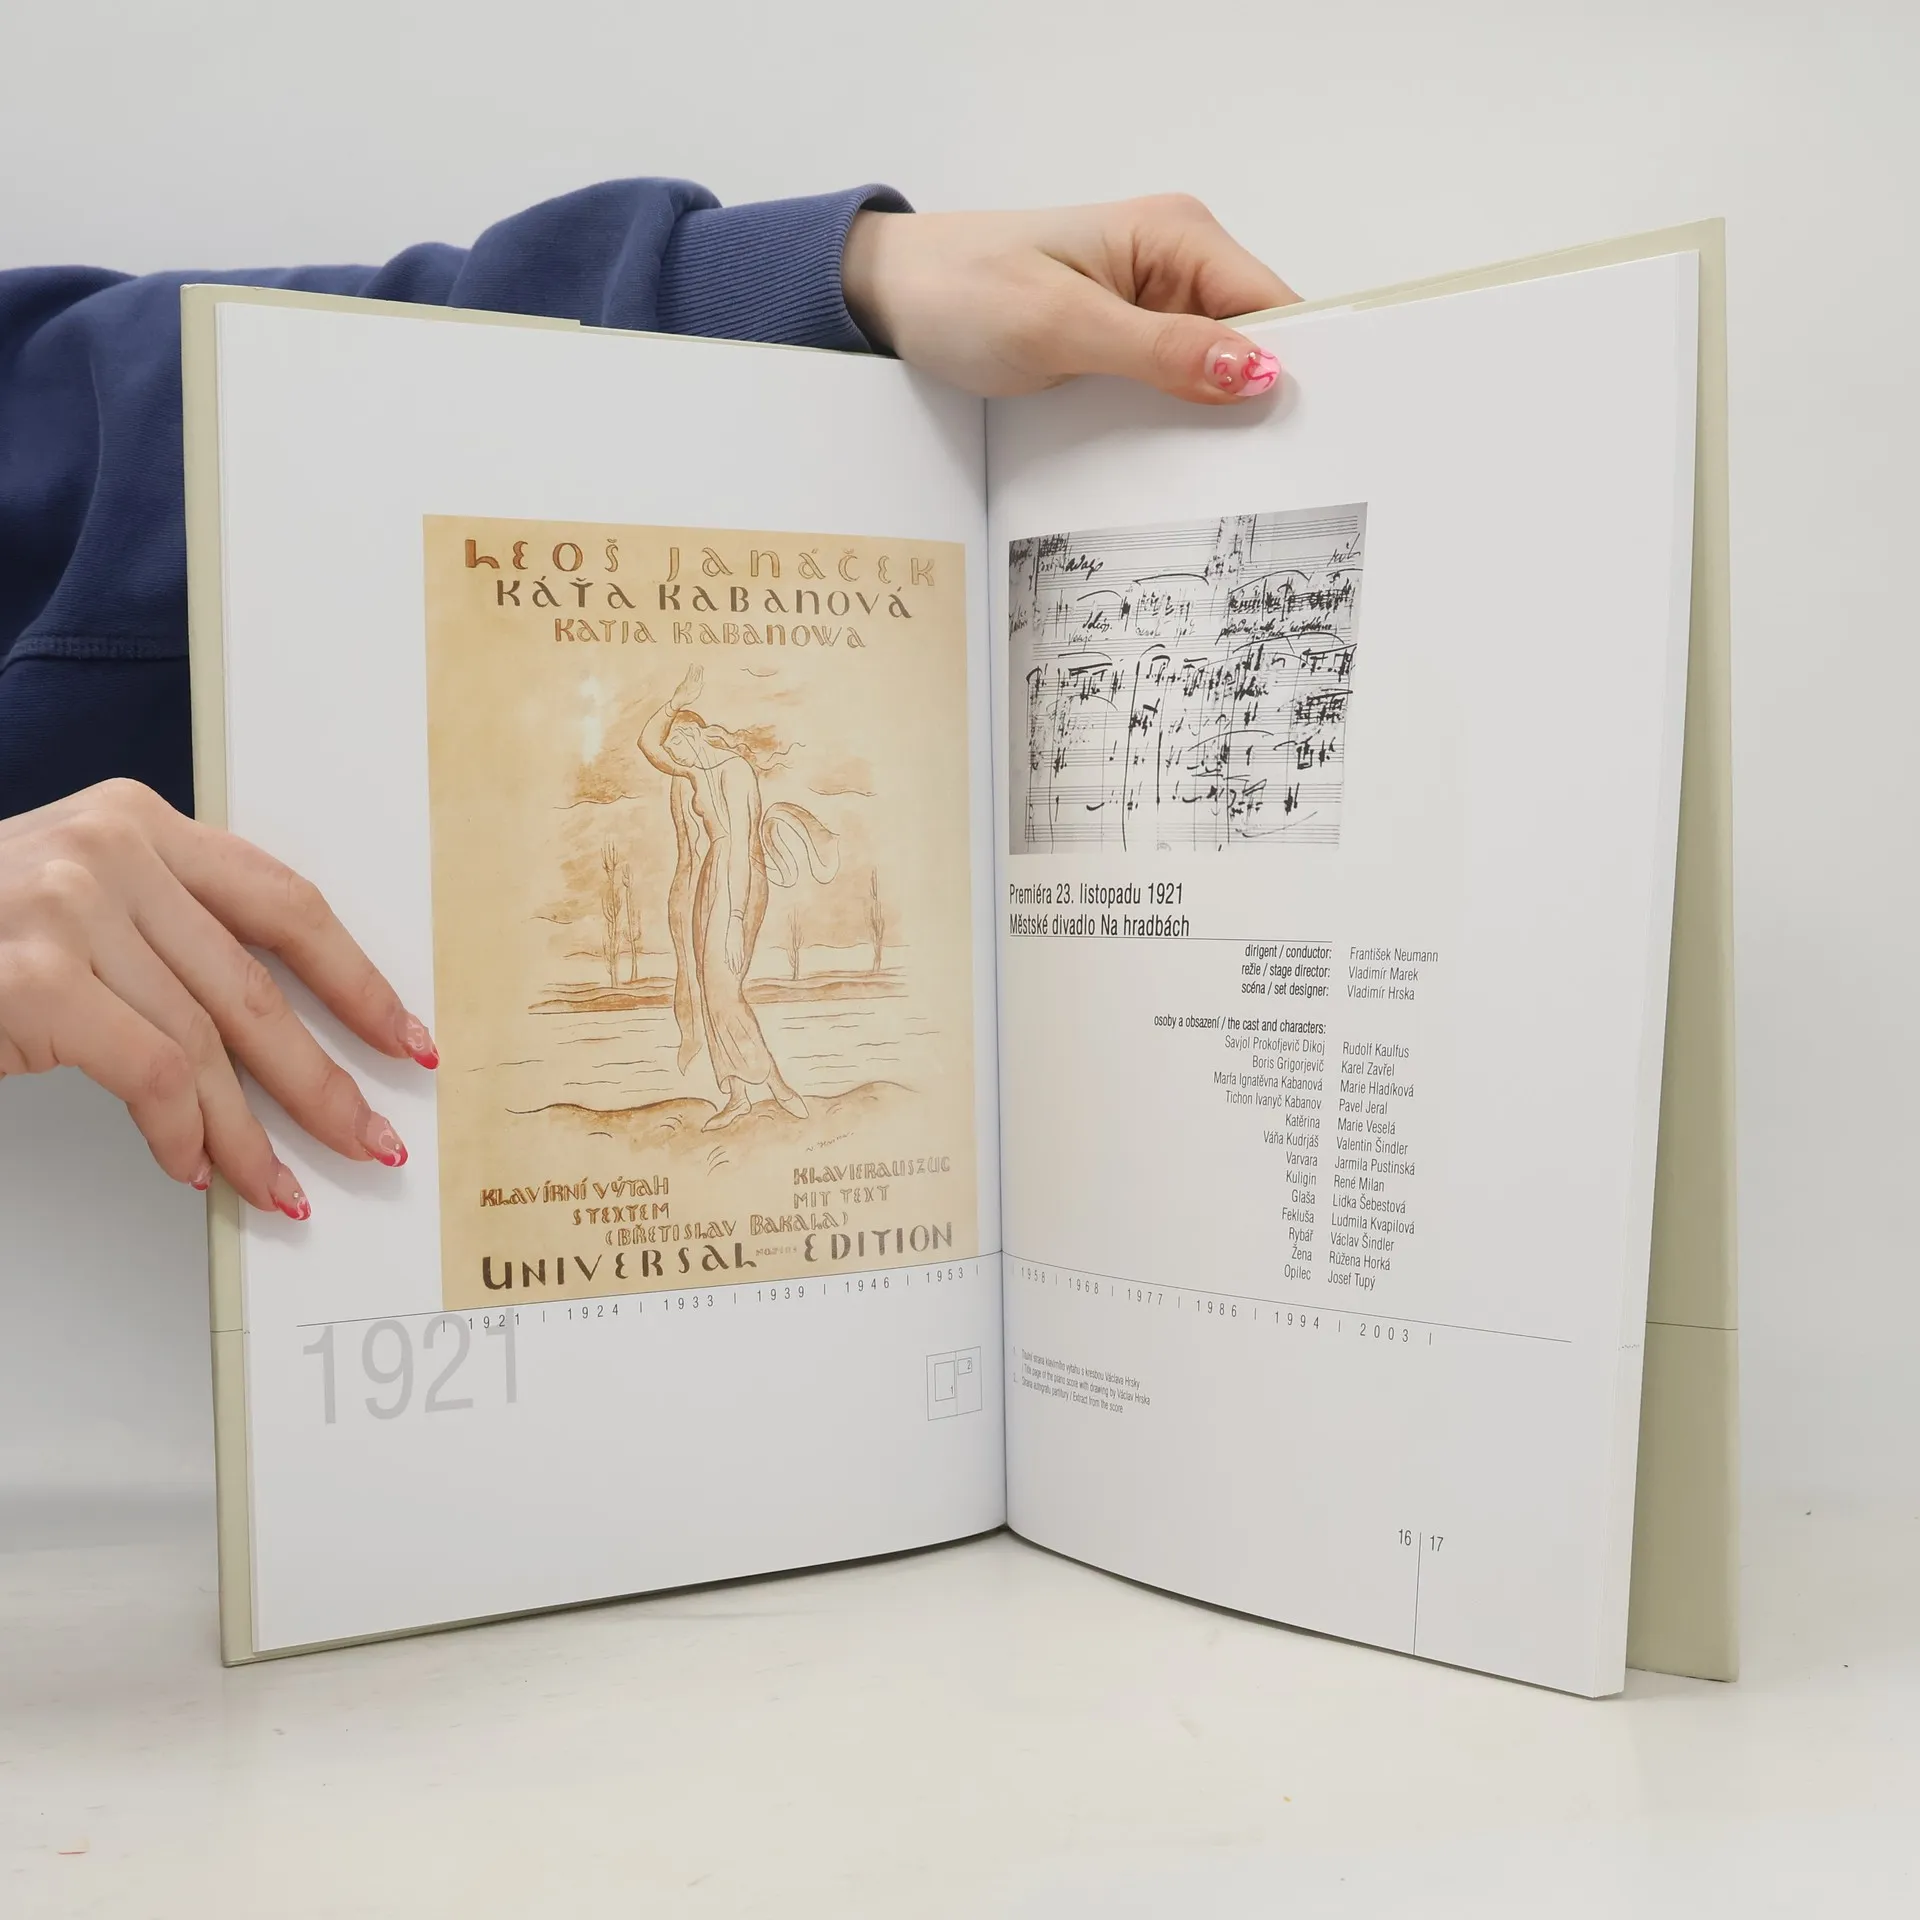 LEOŠ JANÁČEK
KÁŤA KABANOVÁ
KATJA KABANOWA
KLAVÍRNÍ VÝTAH
S TEXTEM
KLAVIERAUSZUG
MIT TEXT
(BŘETISLAV BAKALA)
UNIVERSAL EDITION
| 1921 | 1924 | 1933 | 1939 | 1946 | 1953 |
1921
1
2
Premiéra 23. listopadu 1921
Městské divadlo Na hradbách
dirigent / conductor: František Neumann
režie / stage director: Vladimír Marek
scéna / set designer: Vladimír Hrska
osoby a obsazení / the cast and characters:
Savjol Prokofjevič Dikoj Rudolf Kaulfus
Boris Grigorjevič Karel Zavřel
Marfa Ignatěvna Kabanová Marie Hladíková
Tichon Ivanyč Kabanov Pavel Jeral
Katěrina Marie Veselá
Váňa Kudrjáš Valentin Šindler
Varvara Jarmila Pustinská
Kuligin René Milan
Glaša Lidka Šebestová
Fekluša Ludmila Kvapilová
Rybář Václav Šindler
Žena Růžena Horká
Opilec Josef Tupý
| 1958 | 1968 | 1977 | 1986 | 1994 | 2003 |
1. Titulní strana klavírního výtahu s kresbou Václava Hrsky
/ Title page of the piano score with drawing by Václav Hrska
2. Strana autografu partitury / Extract from the score
16 | 17